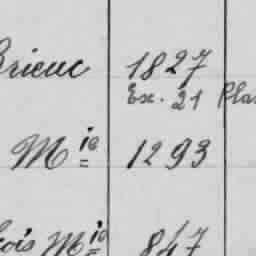 Brieuc 1827
Ex. 21 Plac
M ie 1293
çois Mie 847